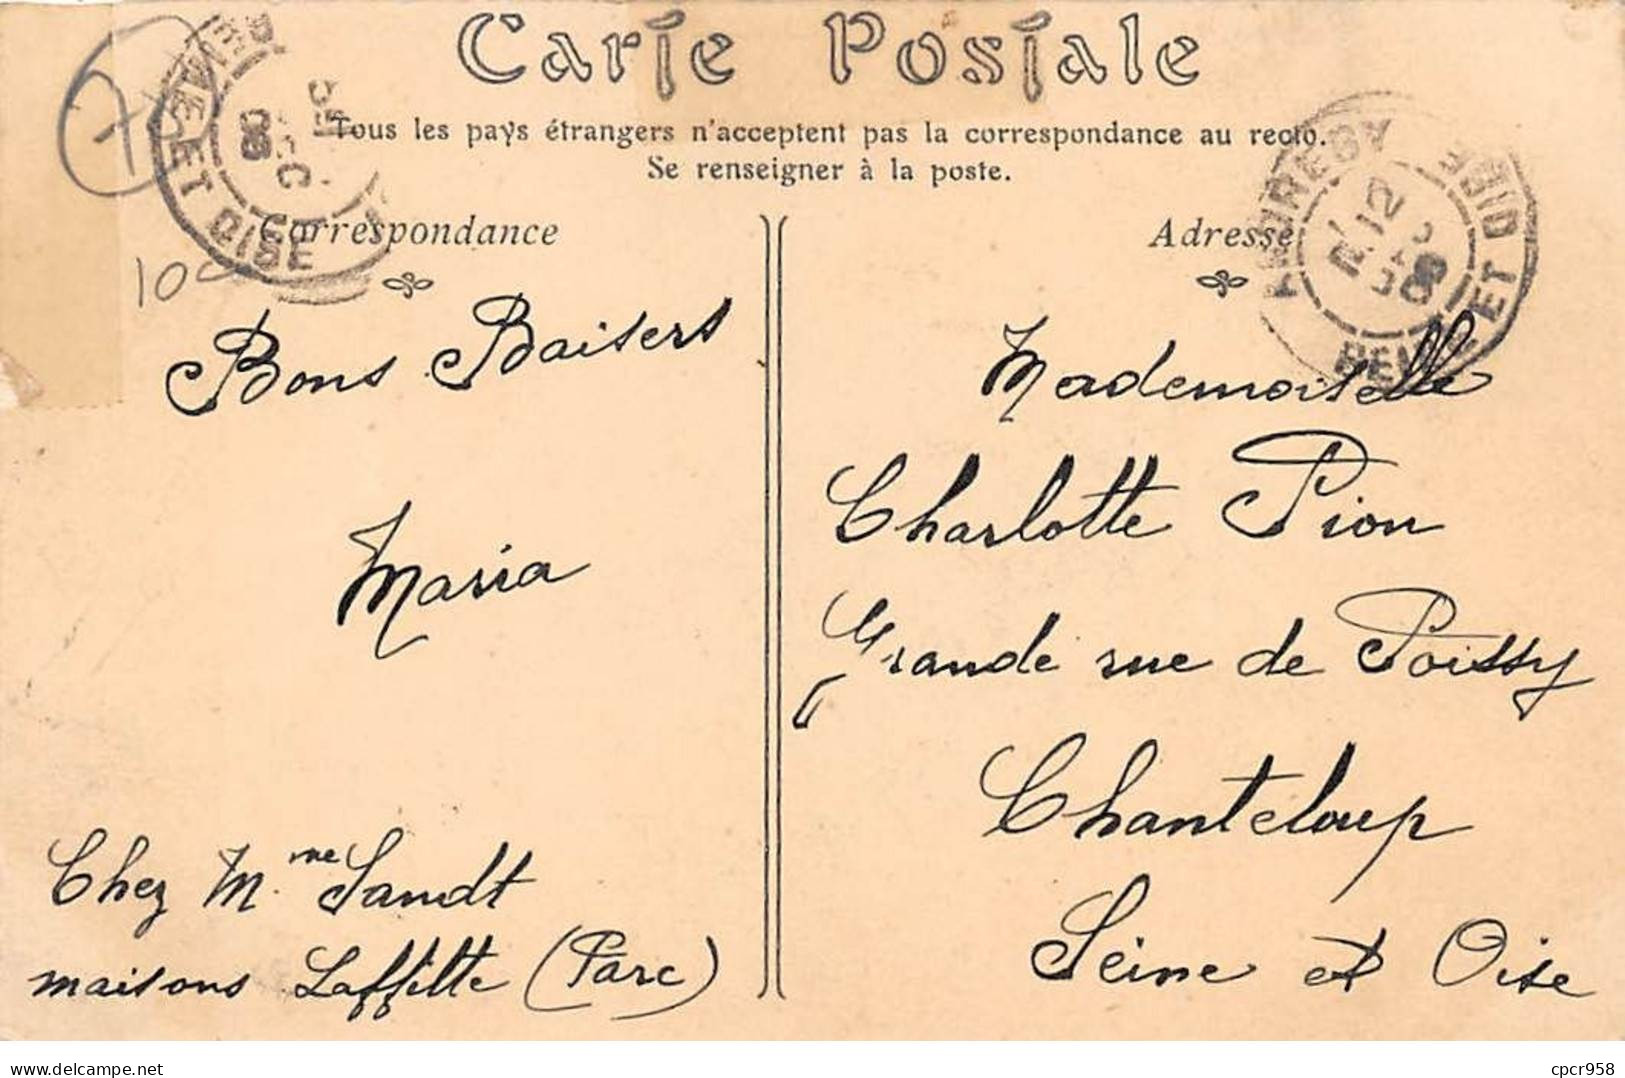 Carte Postale
Tous les pays étrangers n'acceptent pas la correspondance au recto.
Se renseigner à la poste.
Correspondance
Adresse
7
100
ET OISE
08
ET OISE
08
Bons Baisers
Maria
Chez Mme Sandt
maisons Laffitte (Parc)
Mademoiselle
Charlotte Pion
Grande rue de Poissy
Chanteloup
Seine et Oise
Delcampe.net
cpcr958